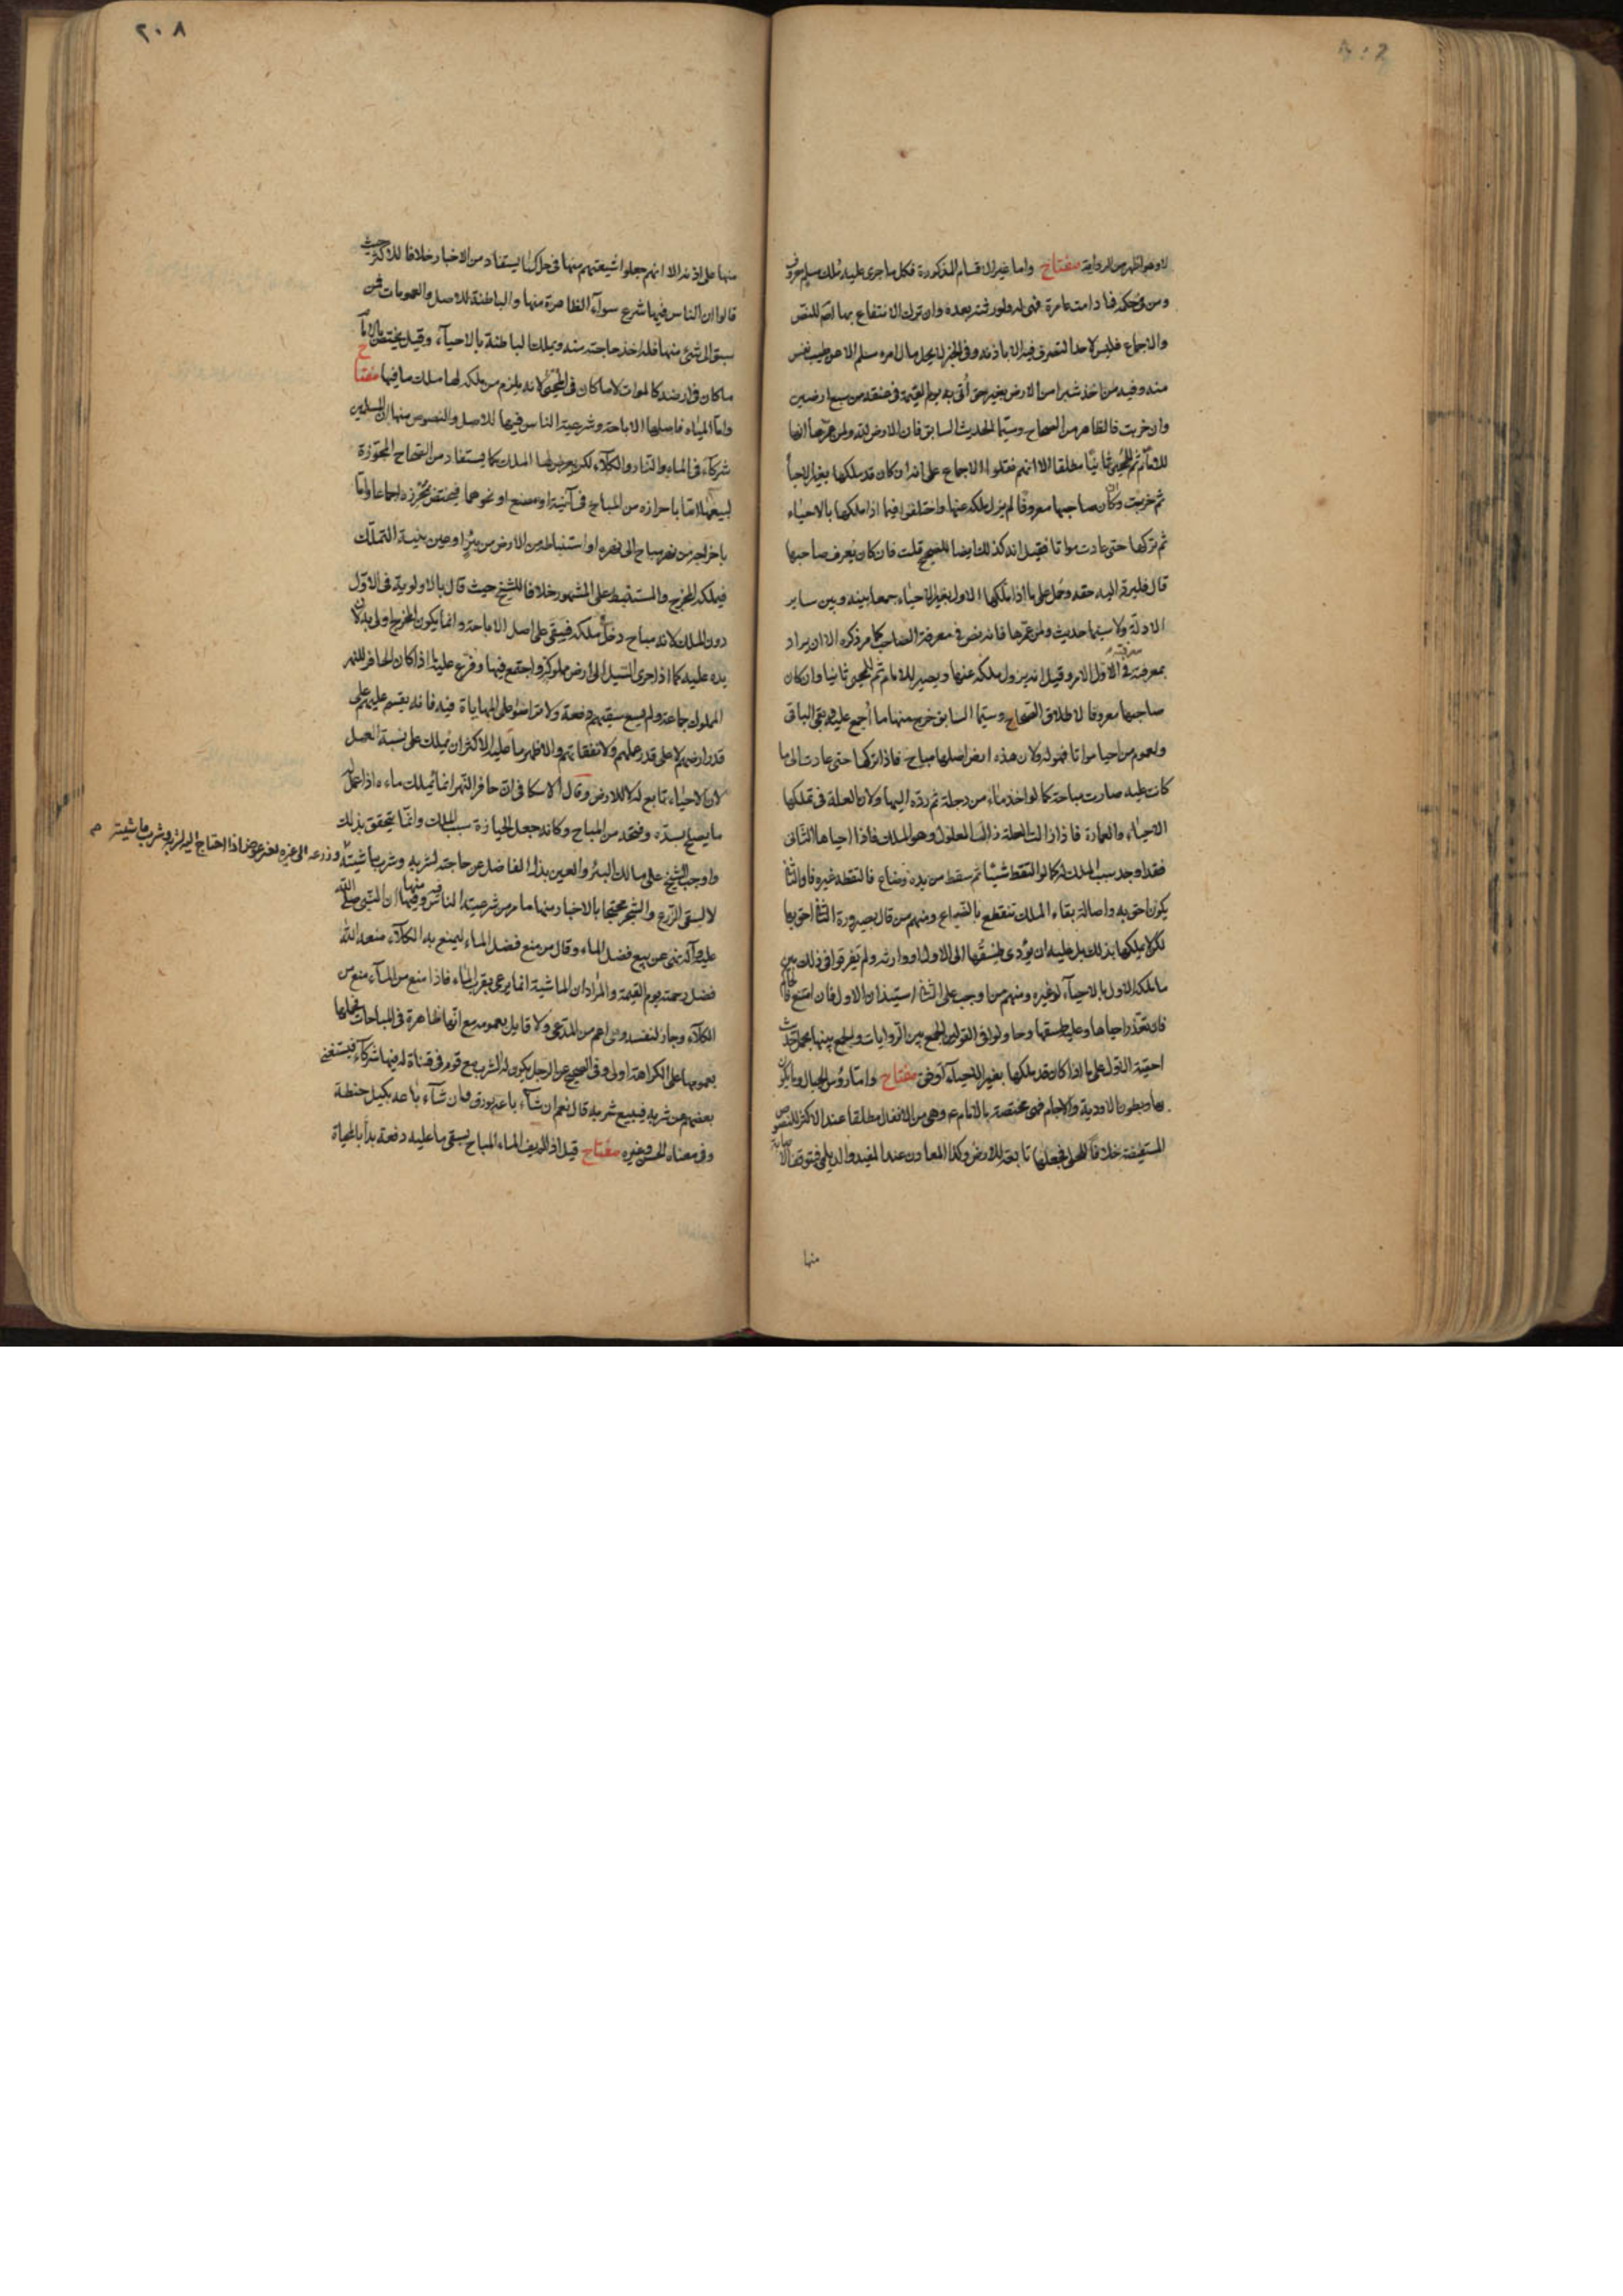 لا وهو اظهر من الرواية مفتاح واما غير الاقسام المذكورة فكل ما جرى عليه ملك مسلم معروف
ومن بحكمه فما دامت عامرة فهى له ولورثته بعده وان ترك الانتفاع بها اصلا للنص
والاجماع فليس لاحد التصرف فيه الا باذنه وفى الخبر لا يحل مال امرء مسلم الا عن طيب نفس
منه وفيه من اخذ شبرا من الارض بغير حق أتى به يوم القيمة فى عنقه من سبع ارضين
وان خربت فالظاهر من الصحاح وسيما الحديث السابق فان الارض لله ولمن عمرها انها
للامام ثم للمحيى ثانيا مطلقا الا انهم نقلوا الاجماع على انه ان كان قد ملكها بغير الاحيا
ثم خربت وكان صاحبها معروفا لم يزل ملكه عنها واختلفوا فيما اذا ملكها بالاحياء
ثم تركها حتى عادت مواتا فقيل انه كذلك ايضا للصحيح قلت فان كان يعرف صاحبها
قال فليرد اليه حقه وحمل على ما اذا ملكها الاول بغير الاحياء جمعا بينه وبين ساير
الادلة ولا سيما حديث ولمن عمرها فانه نص فى معرفة الصاحب كما مر ذكره الا ان يراد
بمعرفته معرفته فى الاول الامر وقيل انه يزول ملكه عنها ويصير للامام ثم للمحيى ثانيا وان كان
صاحبها معروفا لاطلاق الصحاح وسيما السابق خرج منها ما أجمع عليه فبقى الباقى
ولعموم من احيا مواتا فهو له ولان هذه ارض اصلها مباح فاذا تركها حتى عادت الى ما
كانت عليه صارت مباحة كما لو اخذ ماء من دجلة ثم رده اليها ولان العلة فى تملكها
الاحياء والعمارة فاذا زالت العلة زال المعلول وهو الملك فاذا احياها الثانى
فقد اوجد سبب الملك له كما لو التقط شيئا ثم سقط من يده وضاع فالتقطه غيره فاو الثا
يكون احق به واصالة بقاء الملك تنقطع بالضياع ومنهم من قال بصيرورة الثا احق بها
لكن لا يملكها بذلك بل عليه ان يؤدى طسقها الى الاول او وارثه ولم يفرقوا فى ذلك بين
ما ملكه الاول بالاحياء او غيره ومنهم من اوجب على الثا استيذان الاول فان امتنع فالحاكم
فان تعذر احياها وعليه طسقها وحاولوا فى القولين الجمع بين الروايات والجمع بينها بحمل
احقية الاول على ما اذا كان قد ملكها بغير الاحياء اوفق مفتاح واما رؤس الجبال وما يكون
بها وبطون الاودية والاجام فهى مختصة بالامام ع وهى من الانفال مطلقا عند الاكثر للنصوص
المستفيضة خلافا للحلى فجعلها تابعة للارض وكذا المعادن عند المفيد والديلمى فتوقف الاصابة
منها
٢٠٨
منها على اذنه الا انهم جعلوا شيعتهم منها فى حل كما يستفاد من الاخبار خلافا للاكثر حيث
قالوا ان الناس فيها شرع سوآء الظاهرة منها والباطنة للاصل والعمومات فمن
سبق الى شئ منها فله اخذ حاجته منه ويملك الباطنة بالاحيآء وقيل يختص بالامام
ما كان فى ارضه كالموات لا ما كان فى المحيى لانه يلزم من ملكه لها ملك ما فيها مفتاح
واما المياه فاصلها الاباحة وشرعية الناس فيها للاصل والنصوص منها ان المسلمين
شركآء فى الماء والنار والكلآء لكن يعرض لها الملك كما يستفاد من الصحاح المجوزة
لبيعها اما باحرازه من المباح فى آنية او مصنع او نحوهما فيختص بمحرزه اجماعا واما
باخراجه من نهر مباح الى نهره او استنباطه من الارض من بئر او عين بنية التملك
فيملكه المخرج والمستنبط على المشهور خلافا للشيخ حيث قال بالاولوية فى الاول
دون الملك لانه مباح دخل ملكه فيبقى على اصل الاباحة وانما يكون المخرج اولى به لان
يده عليه كما اذا جرى السيل الى ارض مملوكة واجتمع فيها وفرع عليه اذا كان الحافر للنهر
المملوك جماعة ولم يسع سقيهم دفعة ولا تراضوا على المهاياة فيه فانه يقسم عليهم على
قدر ارضهم لا على قدر عملهم ولا نفقاتهم والاظهر ما عليه الاكثر ان يملك على نسبة العمل
لان الاحياء تابع له لا للارض وقال الاسكافى ان حافر النهر انما يملك ماءه اذا عمل له
ما يصلح لسده وفتحه من المباح وكانه جعل الحيازة سبب الملك وانما يتحقق بذلك
واوجب الشيخ على مالك البئر والعين بذل الفاضل عن حاجته لشربه وشرب ماشيته
وزرعه الى غيره لغير عوض اذا احتاج اليه لشربه وشرب ماشيته م
لا لسقى الزرع والشجر محتجا بالاخبار منها ما مر من شرعية الناس فيه منها وفيها ان النبى صلى الله
عليه وآله نهى عن بيع فضل الماء وقال من منع فضل الماء ليمنع به الكلآء منعه الله
فضل رحمته يوم القيمة والمراد ان الماشية انما يرعى بقرب الماء فاذا منع من المآء منع من
الكلآء وجاز لنفسه وهى اعم من المدعى ولا قايل بعمومه مع انها ظاهرة فى المباحات فحملها
بعمومها على الكراهة اولى وفى الصحيح عن الرجل يكون له الشرب مع قوم فى قناة له فيها شركآء فيستغنى
بعضهم عن شربه فيبيع شربه قال نعم ان شآء باعه بورق وان شآء باعه بكيل حنطة
وفى معناه الحسن وغيره مفتاح قيل اذا لم يف الماء المباح بسقى ما عليه دفعة بدأ بالمحياة